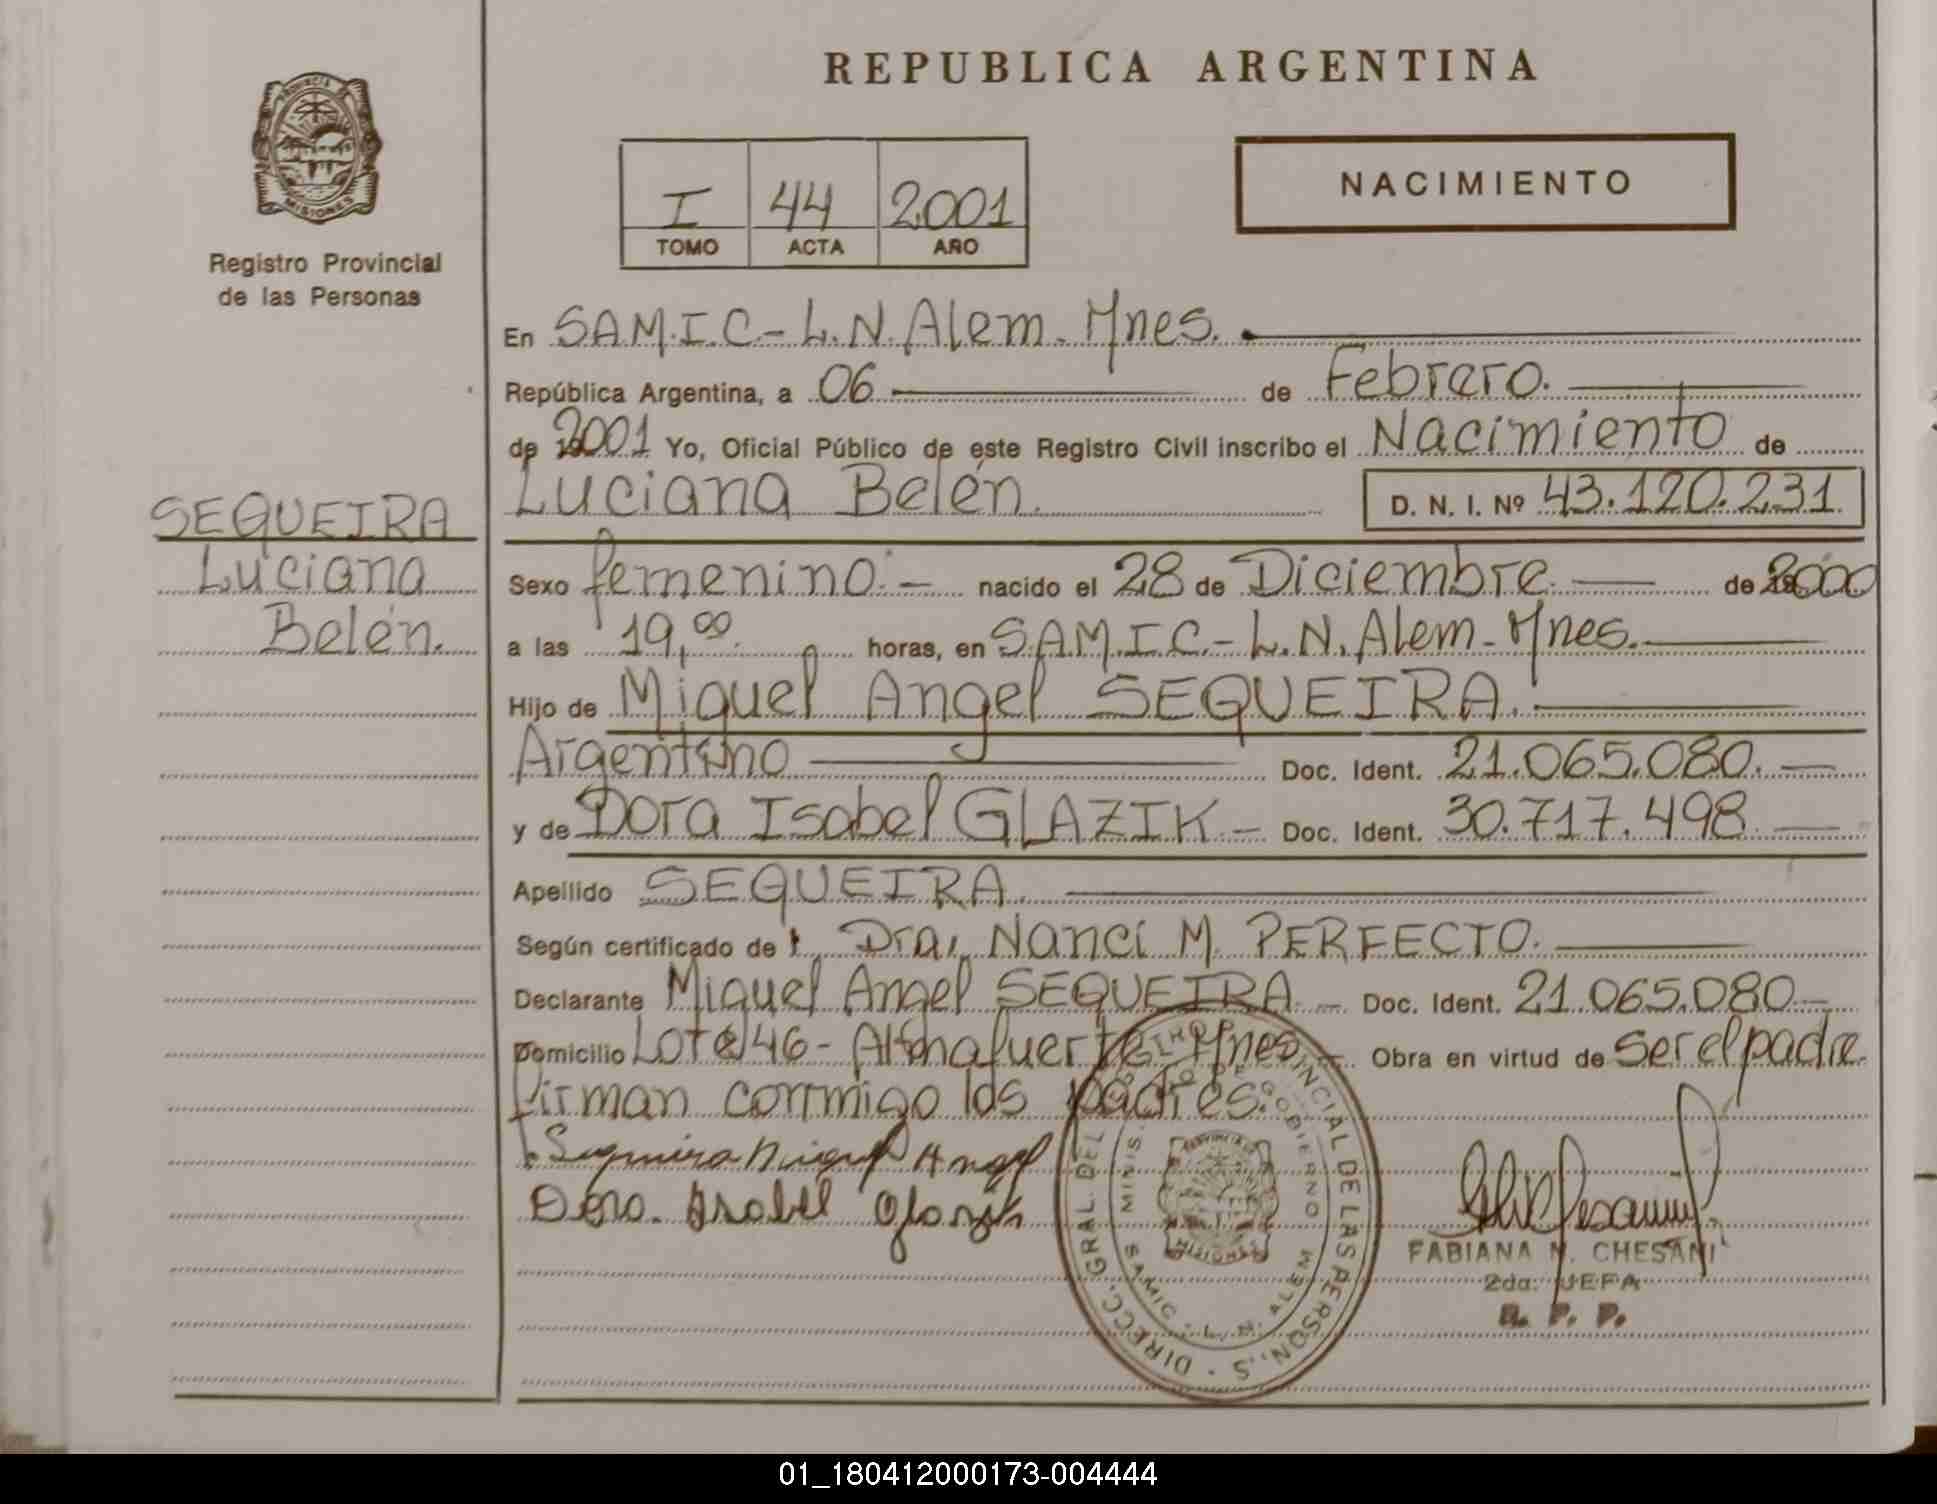 REPUBLICA ARGENTINA
PROVINCIA DE
MISIONES
Registro Provincial
de las Personas
I 44 2001
TOMO ACTA AÑO
NACIMIENTO
SEQUEIRA
Luciana
Belén.
En SAM.I.C-L.N.Alem-Mnes.
República Argentina, a 06 de Febrero.
de 2001 Yo, Oficial Público de este Registro Civil inscribo el Nacimiento de
Luciana Belén. D. N. I. Nº 43.120.231
Sexo femenino.- nacido el 28 de Diciembre. de 2000
a las 19,00. horas, en SAM.I.C-L.N.Alem-Mnes.
Hijo de Miguel Angel SEQUEIRA.
Argentino Doc. Ident. 21.065.080.-
y de Dora Isabel GLAZIK.- Doc. Ident. 30.717.498.-
Apellido SEQUEIRA.
Según certificado de: Dra. Nanci M. PERFECTO.
Declarante Miguel Angel SEQUEIRA.- Doc. Ident. 21.065.080.-
Domicilio Lote 46- Mnes.- Obra en virtud de Ser el padre.
firman conmigo los padres.
Sequeira Miguel Angel
Dora Isabel Glazik
DIREC. GRAL. DEL REGISTRO PROVINCIAL DE LAS PERSON.S
MINISTERIO DE GOBIERNO
PROVINCIA
MISIONES
SAMIC - L. N. ALEM
FABIANA N. CHESANI
2da. JEFA
R. P. P.
01_180412000173-004444